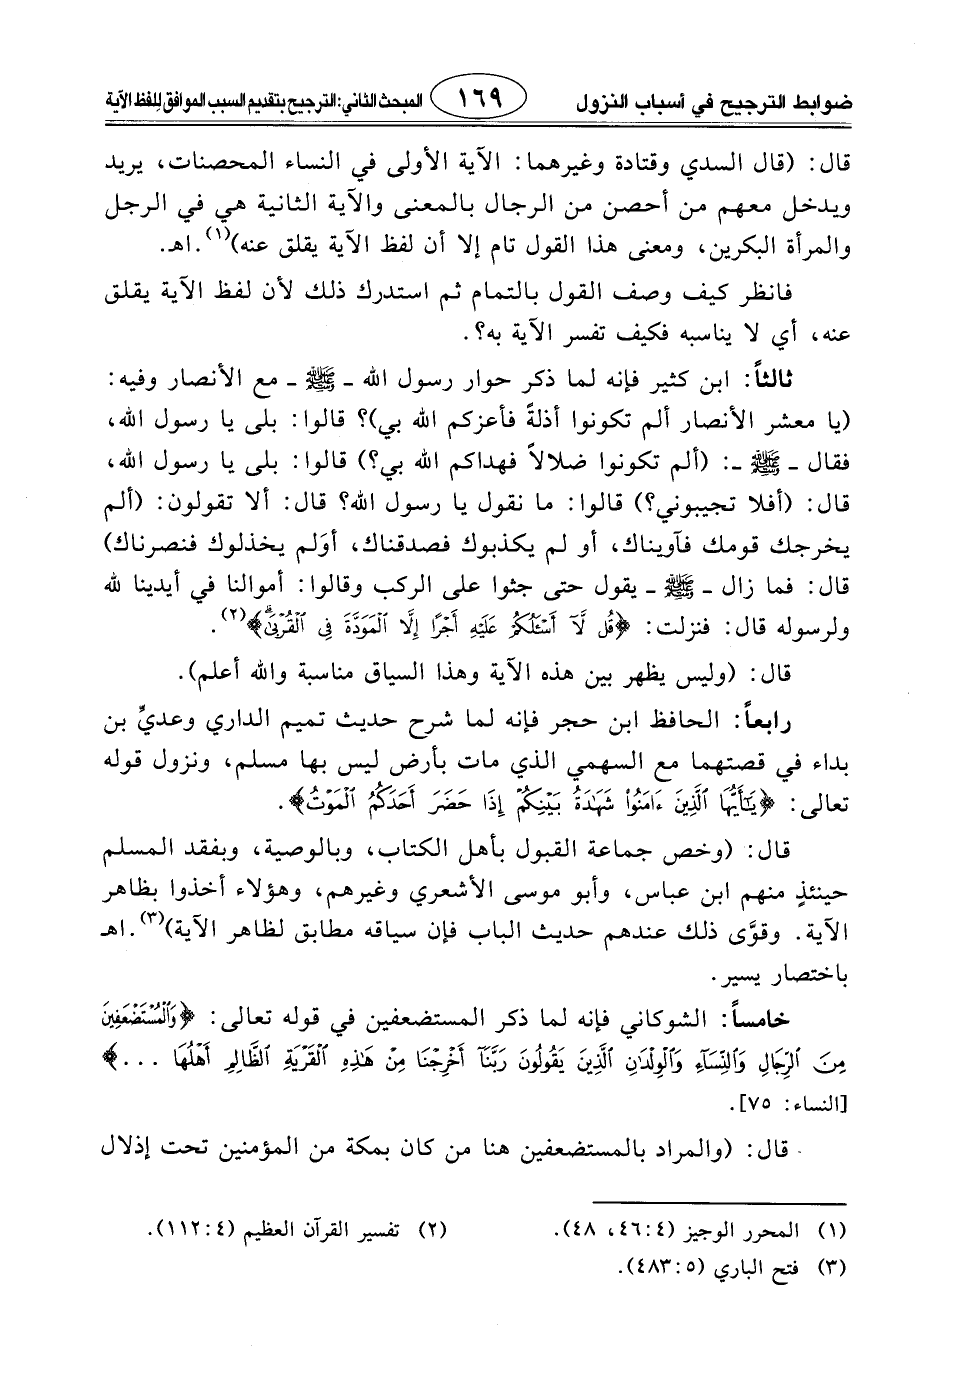 ضوابط الترجيح في أسباب النزول ١٦٩ المبحث الثاني: الترجيح بتقديم السبب الموافق للفظ الآية
قال: (قال السدي وقتادة وغيرهما: الآية الأولى في النساء المحصنات، يريد
ويدخل معهم من أحصن من الرجال بالمعنى والآية الثانية هي في الرجل
والمرأة البكرين، ومعنى هذا القول تام إلا أن لفظ الآية يقلق عنه)(١).اهـ.
فانظر كيف وصف القول بالتمام ثم استدرك ذلك لأن لفظ الآية يقلق
عنه، أي لا يناسبه فكيف تفسر الآية به؟.
ثالثاً: ابن كثير فإنه لما ذكر حوار رسول الله ـ ﷺ ـ مع الأنصار وفيه:
(يا معشر الأنصار ألم تكونوا أذلةً فأعزكم الله بي)؟ قالوا: بلى يا رسول الله،
فقال ـ ﷺ ـ: (ألم تكونوا ضلالاً فهداكم الله بي؟) قالوا: بلى يا رسول الله،
قال: (أفلا تجيبوني؟) قالوا: ما نقول يا رسول الله؟ قال: ألا تقولون: (ألم
يخرجك قومك فآويناك، أو لم يكذبوك فصدقناك، أوَلم يخذلوك فنصرناك)
قال: فما زال ـ ﷺ ـ يقول حتى جثوا على الركب وقالوا: أموالنا في أيدينا لله
ولرسوله قال: فنزلت: ﴿قُل لَّآ أَسْـَٔلُكُمْ عَلَيْهِ أَجْرًا إِلَّا ٱلْمَوَدَّةَ فِى ٱلْقُرْبَىٰ﴾(٢).
قال: (وليس يظهر بين هذه الآية وهذا السياق مناسبة والله أعلم).
رابعاً: الحافظ ابن حجر فإنه لما شرح حديث تميم الداري وعديِّ بن
بداء في قصتهما مع السهمي الذي مات بأرض ليس بها مسلم، ونزول قوله
تعالى: ﴿يَٰٓأَيُّهَا ٱلَّذِينَ ءَامَنُوا۟ شَهَٰدَةُ بَيْنِكُمْ إِذَا حَضَرَ أَحَدَكُمُ ٱلْمَوْتُ﴾.
قال: (وخص جماعة القبول بأهل الكتاب، وبالوصية، وبفقد المسلم
حينئذٍ منهم ابن عباس، وأبو موسى الأشعري وغيرهم، وهؤلاء أخذوا بظاهر
الآية. وقوَّى ذلك عندهم حديث الباب فإن سياقه مطابق لظاهر الآية)(٣).اهـ
باختصار يسير.
خامساً: الشوكاني فإنه لما ذكر المستضعفين في قوله تعالى: ﴿وَٱلْمُسْتَضْعَفِينَ
مِنَ ٱلرِّجَالِ وَٱلنِّسَآءِ وَٱلْوِلْدَٰنِ ٱلَّذِينَ يَقُولُونَ رَبَّنَآ أَخْرِجْنَا مِنْ هَٰذِهِ ٱلْقَرْيَةِ ٱلظَّالِمِ أَهْلُهَا ...﴾
[النساء: ٧٥].
قال: (والمراد بالمستضعفين هنا من كان بمكة من المؤمنين تحت إذلال
(١) المحرر الوجيز (٤:٤٦، ٤٨). (٢) تفسير القرآن العظيم (٤:١١٢).
(٣) فتح الباري (٥:٤٨٣).